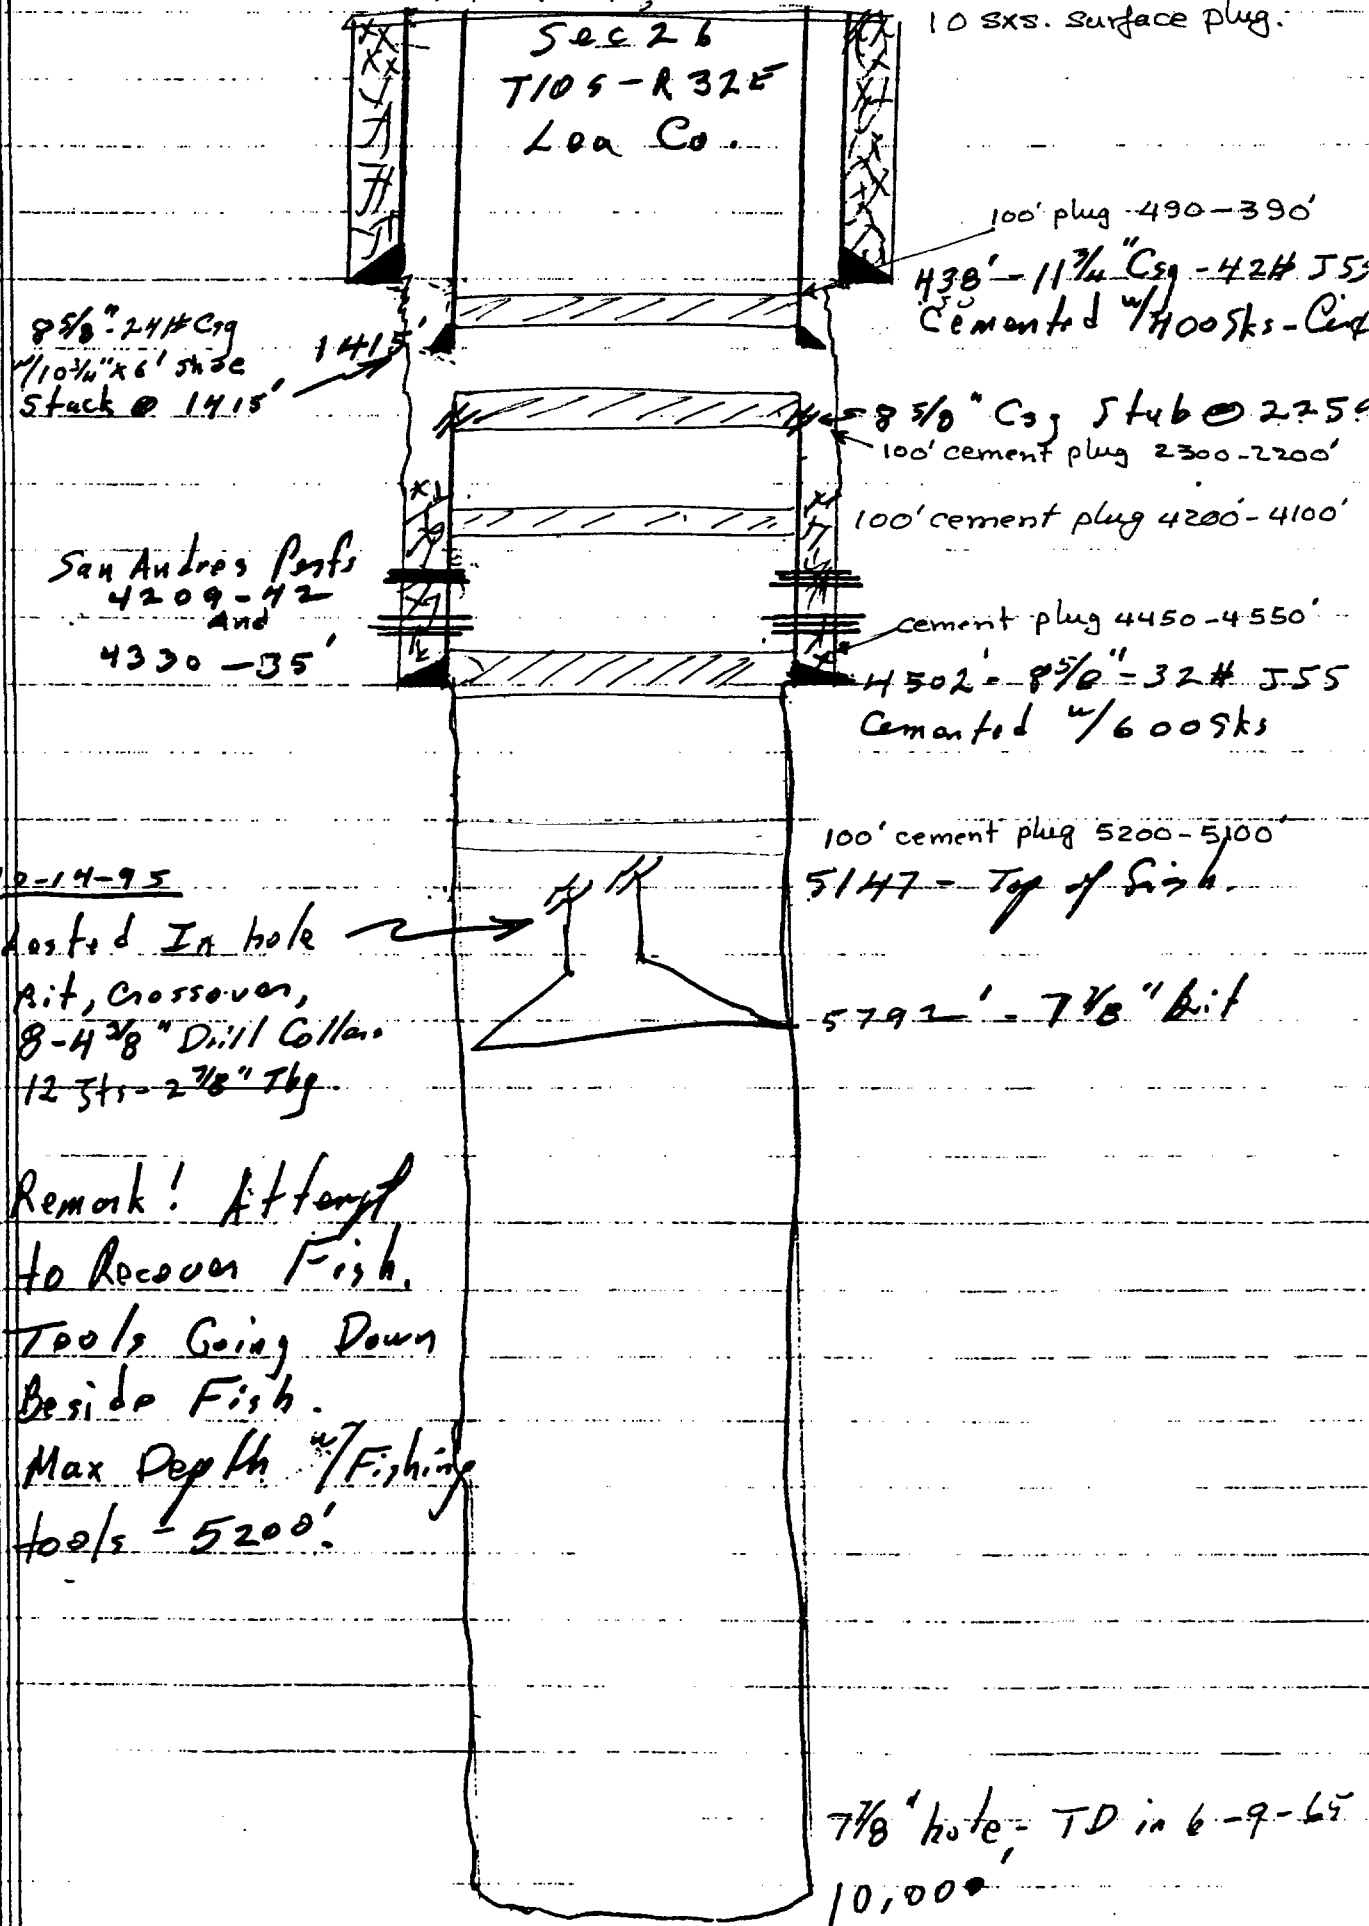 10 sxs. surface plug.
Sec 26
T10S-R32E
Lea Co.
100' plug 490-390'
438' - 11 3/4" Csg - 42# J55
Cemented w/400 Sks - Circ
8 5/8" - 24# Csg
w/10 3/4" x 6' shoe
Stuck @ 1415'
1415'
8 5/8" Csg Stub @ 2259
100' cement plug 2300-2200'
100' cement plug 4200'-4100'
San Andres Perfs
4209-42
And
4330-35'
cement plug 4450-4550'
4502' - 8 5/8" - 32# J55
Cemented w/600 Sks
100' cement plug 5200-5100'
5147 - Top of Fish.
-14-95
Losted In hole
Bit, Crossover,
8-4 3/8" Drill Collar
12 Jts - 2 7/8" Tbg.
5792' - 7 7/8" Bit
Remark! Attempt
to Recover Fish.
Tools Going Down
Beside Fish.
Max Depth w/Fishing
tools - 5200'.
7 7/8" hole, TD in 6-9-65
10,000'